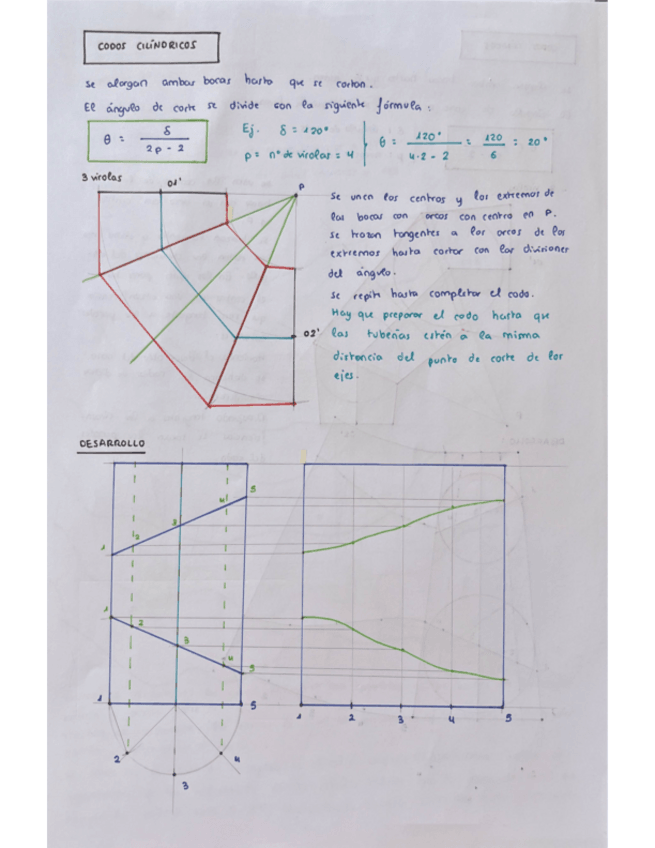 CODOS CILÍNDRICOS
Se alargan ambas bocas hasta que se cortan.
El ángulo de corte se divide con la siguiente fórmula:
θ = δ / 2p - 2
Ej. δ = 120°
p = nº de virolas = 4
θ = 120° / 4·2 - 2 = 120 / 6 = 20°
3 virolas
O1'
P
Se unen los centros y los extremos de
las bocas con arcos con centro en P.
Se trazan tangentes a los arcos de los
extremos hasta cortar con las divisiones
del ángulo.
Se repite hasta completar el codo.
Hay que preparar el codo hasta que
las tuberías estén a la misma
distancia del punto de corte de los
ejes.
O2'
DESARROLLO
5
4
3
2
1
1
2
3
4
5
1
5
1
2
3
4
5
2
4
3